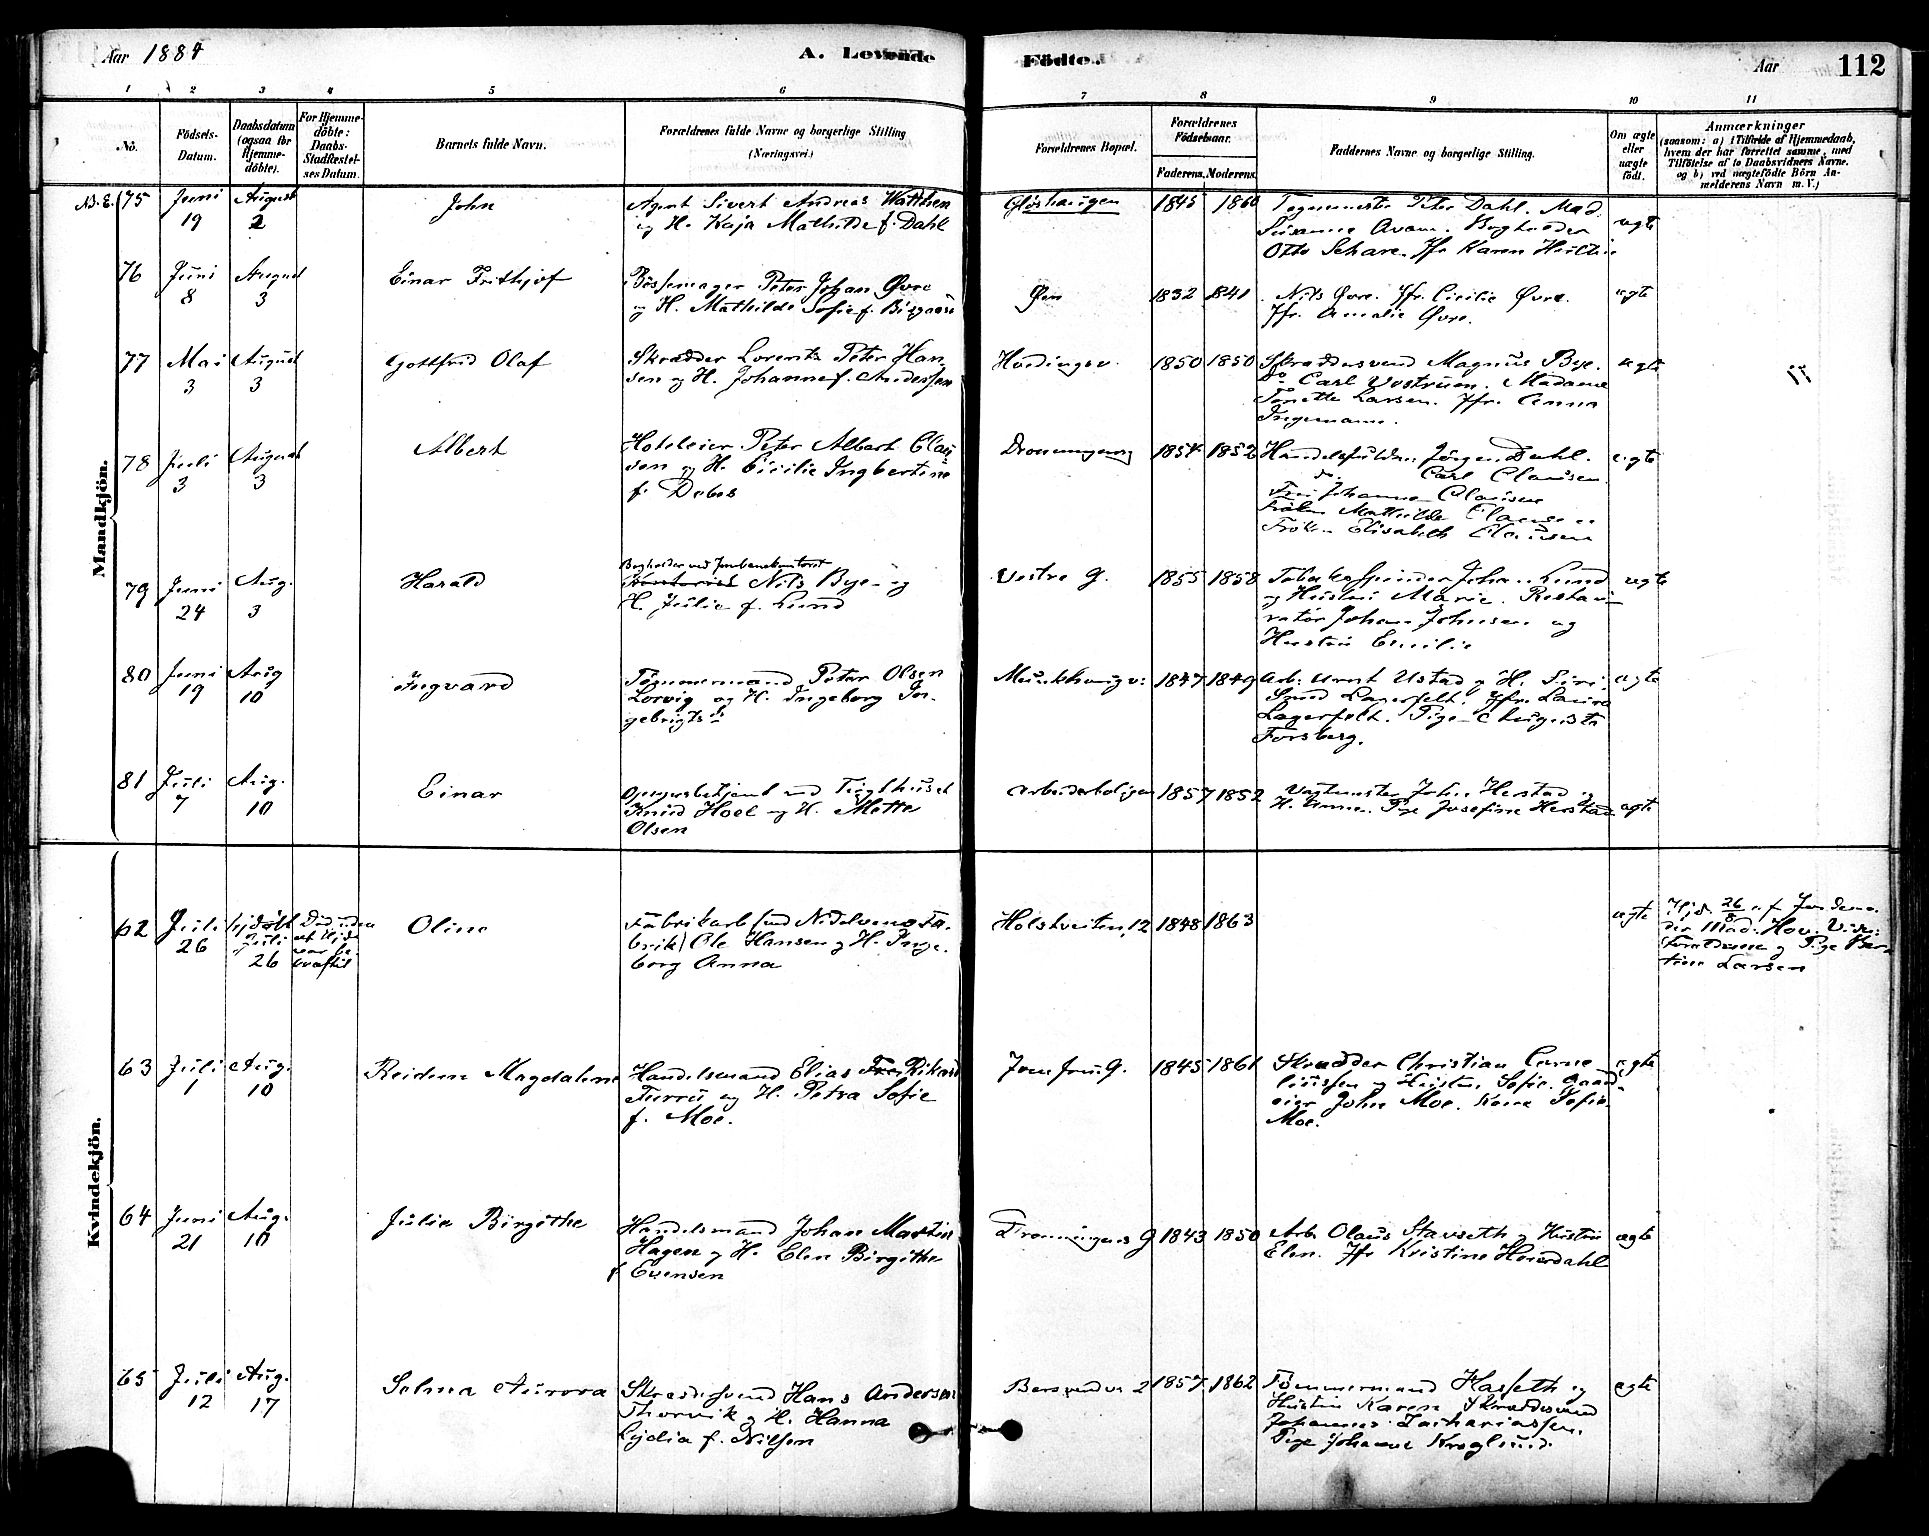 Aar 1884
A. Levende
Födte.
Aar
112
1 2 3 4 5 6 7 8 9 10 11
No.
Födsels-
Datum.
Daabsdatum
(ogsaa for
Hjemme-
döbte).
For Hjemme-
döbte:
Daabs-
Stadfæstel-
ses Datum.
Barnets fulde Navn.
Forældrenes fulde Navne og borgerlige Stilling
(Næringsvei.)
Forældrenes Bopæl.
Forældrenes
Födselsaar.
Faderens. Moderens.
Faddernes Navne og borgerlige Stilling.
Om ægte
eller
uægte
født.
Anmærkninger
(saasom: a) i Tilfælde af Hjemmedaab,
hvem der har forrettet samme, med
Tilføielse af to Daabsvidners Navne.
og b) ved uægtefödte Börn An-
melderens Navn m. V.)
Mandkjön.
75
Juni
19
August
2
John
Agent Sivert Andreas Watthen
og H. Kaja Mathilde f. Dahl
Gløshaugen
1845 1860
Peter Dahl. Mad.
Otto Schare. Jfr Karen
ægte
76
Juni
8
August
3
Einar Frithjof
Bøssemager Peter Johan Øvre
og H. Mathilde Sofie f.
Øen
1832 1841
Nils Øvre. Jfr. Cicilie Øvre.
Jfr. Amalie Øvre.
ægte
77
Mai
3
August
3
Gottfred Olaf
Skrædder Lorents Peter Han
sen og H. Johanne f. Anderssen
1850 1850
Skræddersvend Magnus Bye.
Do Carl Vestrum. Madame
Tonette Larsen. Jfr. Anna
Ingemann.
ægte
78
Juli
3
August
3
Albert
Hoteleier Peter Albert Clau
sen og H. Cicilie Ingbertine
f. Debes
1854 1852
Jørgen Dahl.
do. Carl Clausen
Fru Johanna Clausen
Frøken Mathilde Clausen
Frøken Elisabeth Clausen
ægte
79
Juni
24
Aug.
3
Harald
Bogholder ved Jernbanekontoret
Nils Bye og
H. Julie f. Lund
Vestre G.
1855 1858
Tobaksspinder Johan Lund
og Hustru Marie. Restau
ratør Johan Johnsen og
Hustru Emilie
ægte
80
Juni
19
Aug
10
Ingvard
Tømmermand Peter Olsen
Lorvig og H. Ingeborg In-
gebrigtsd.
1847 1849
Arb: Arnt Ustad og H. Siri.
Lagerfelt. Jfr. Laura
Lagerfelt. Pige Augusta
Forsberg.
ægte
81
Juli
7
Aug.
10
Einar
Opsynsbetjent ved Tugthuset
Knud Hoel og H. Mette
Olsen
Arbeiderboligen
1857 1852
Vagtmester John Herstad og
H. Anne. Pige Josefine Herstad
ægte
Kvindekjön.
62
Juli
26
Hjdøbt
Juli
26
Oline
Fabrikarb (ved Nidelvens Fa-
brik) Ole Hansen og H. Inge-
borg Anna
Holstveiten 12
1848 1863
ægte
Hjd. 26/8 af Jordemo
der Mad. Hov.
Forældrene og Pige Ber
tine Larsen
63
Juli
1
Aug.
10
Reidun Magdalene
Handelsmand Elias Rikard
Furru og H. Petra Sofie
f. Moe.
Jomfru G.
1845 1861
Skrædder Christian Corne
liussen og Hustru Sofie. Gaard
eier John Moe. Kone Sofie
Moe.
ægte
64
Juni
21
Aug.
10
Julie Birgithe
Handelsmand Johan Martin
Hagen og H. Elen Birgithe
f. Evensen
Dronningens G
1843 1850
Arb. Olaus Stavseth og Hustru
Elen. Jfr Kristine Hoverdahl
ægte
65
Juli
12
Aug.
17
Selma Aurora
Skræddersvend Hans Andersen
Thorvik og H. Hanna
Lydia f. Nilsen
1857 1862
Tømmermand Hasseth og
Hustru Karen Skræddersvend
Johannes Zachariassen.
Pige Johanne Kroglund.
ægte